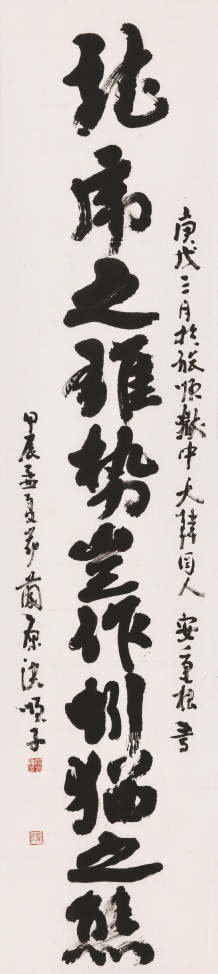 龍虎之雄势豈作蚓猫之態
庚戌三月於旅順獄中大韓国人 安重根 書
甲辰孟夏節 蘭原 洪順子